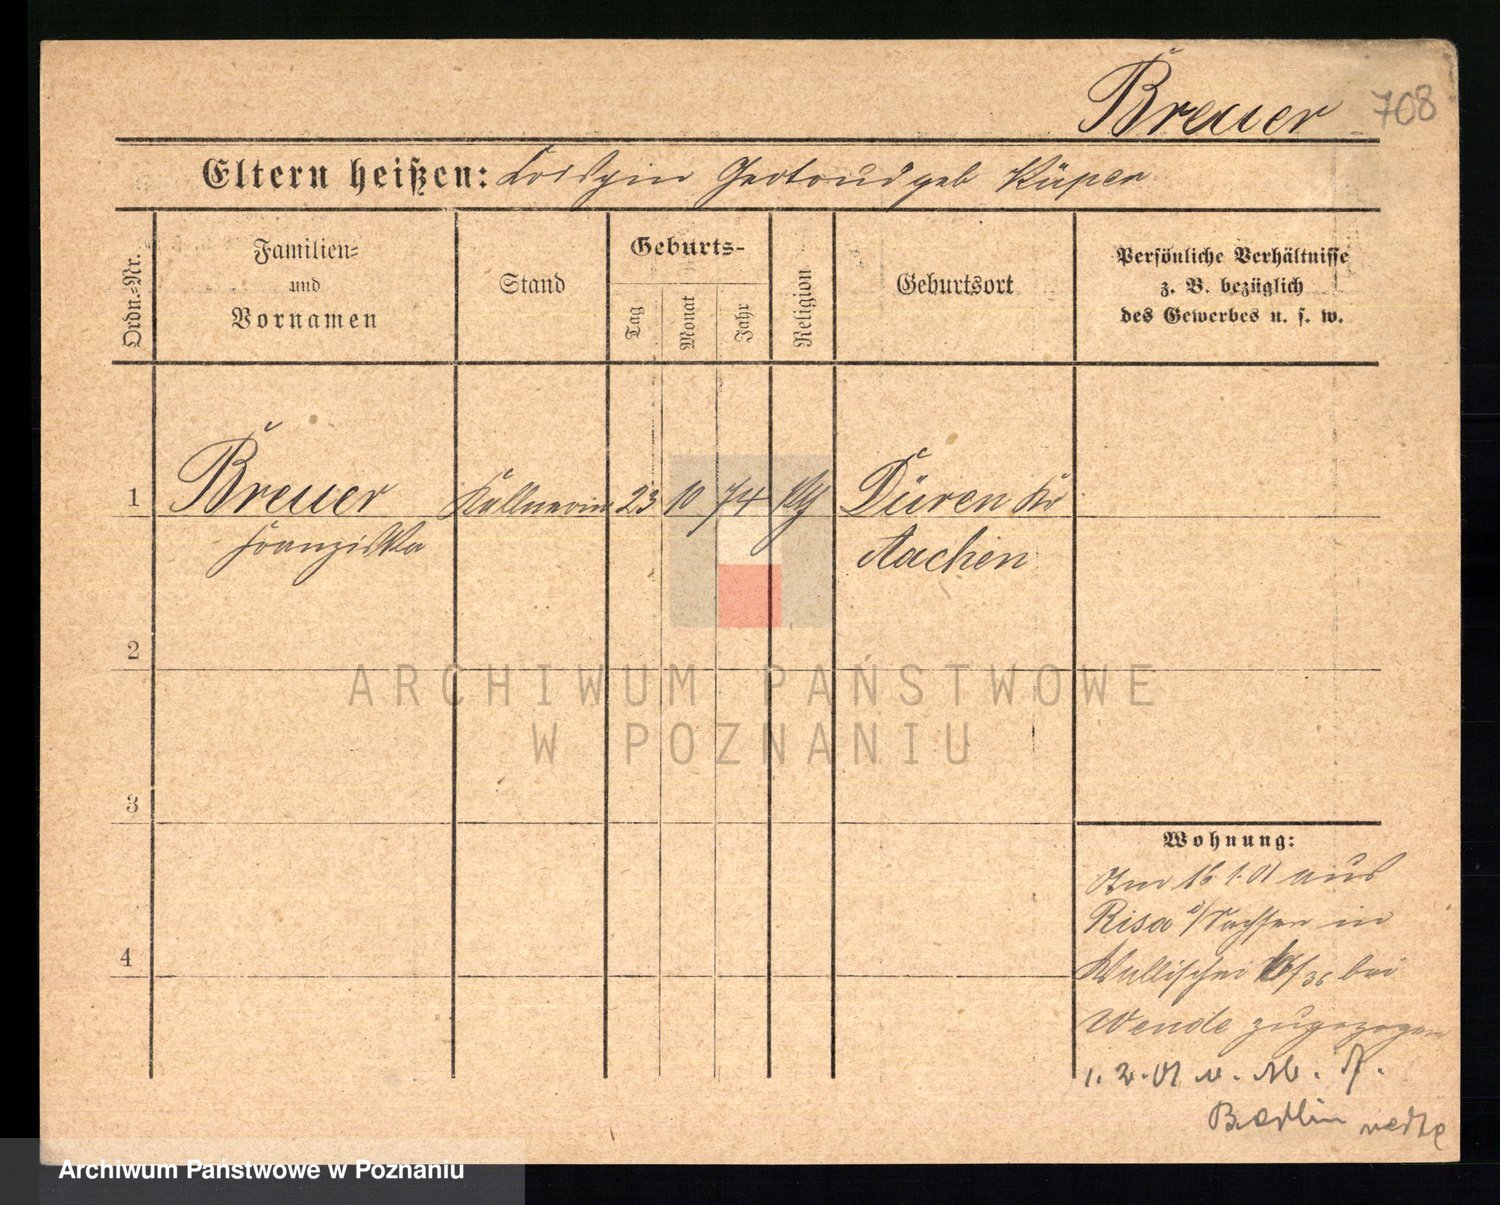 Breuer 708
Eltern heißen: Gertrud geb Küper
Ordn.-Nr.
Familien-
und
Vornamen
Stand
Geburts-
Tag
Monat
Jahr
Religion
Geburtsort
Persönliche Verhältnisse
z. B. bezüglich
des Gewerbes u. s. w.
1 Breuer Kellnerin 23 10 74 Düren Kr
Franziska Aachen
2
3
4
Wohnung:
Am 16 1. 01 aus
Risa i/Sachsen in
Wallischei 6/36 bei
Wende zugezogen
1. 2. 01
Berlin
ARCHIWUM PAŃSTWOWE
W POZNANIU
Archiwum Państwowe w Poznaniu